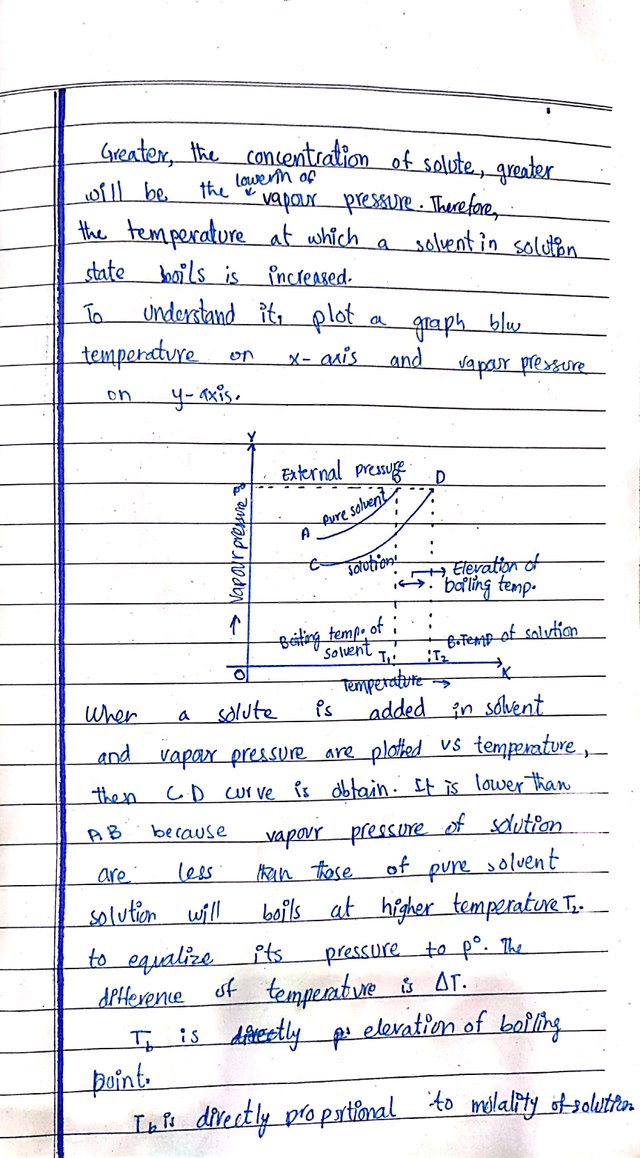 Greater, the concentration of solute, greater
will be the lowerin of vapour pressure. Therefore,
the temperature at which a solvent in solution
state boils is increased.
To understand it, plot a graph b/w
temperature on x-axis and vapour pressure
on y-axis.
Y
External pressure
B D
Vapour pressure
Pure solvent
A
C
solution
Elevation of
boiling temp.
Boiling temp. of
solvent
T1
T2
B.Temp of solution
O
X
Temperature →
When a solute is added in solvent
and vapour pressure are plotted vs temperature,
then C.D curve is obtain. It is lower than
AB because vapour pressure of solution
are less than those of pure solvent
solution will boils at higher temperature T2.
to equalize its pressure to p°. The
difference of temperature is ΔT.
Tb is elevation of boiling
point.
Tb is directly proprtional to molality of solution